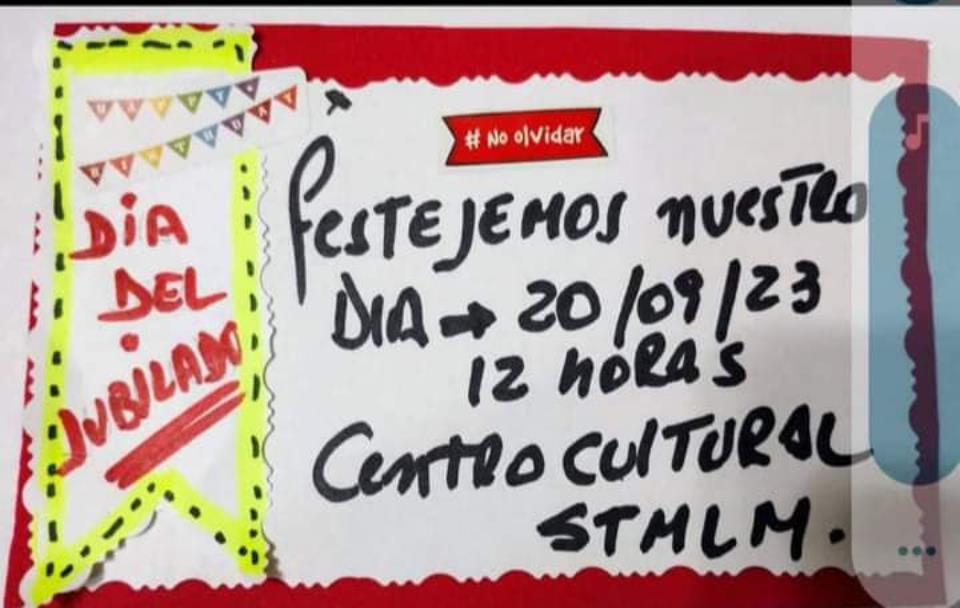 HAPPY
BIRTHDAY
DiA
DEL
JUBiLADO
# No olvidar
FESTEJEMOS NUESTRO
DIA → 20/09/23
12 HORAS
CENTRO CULTURAL
STMLM.